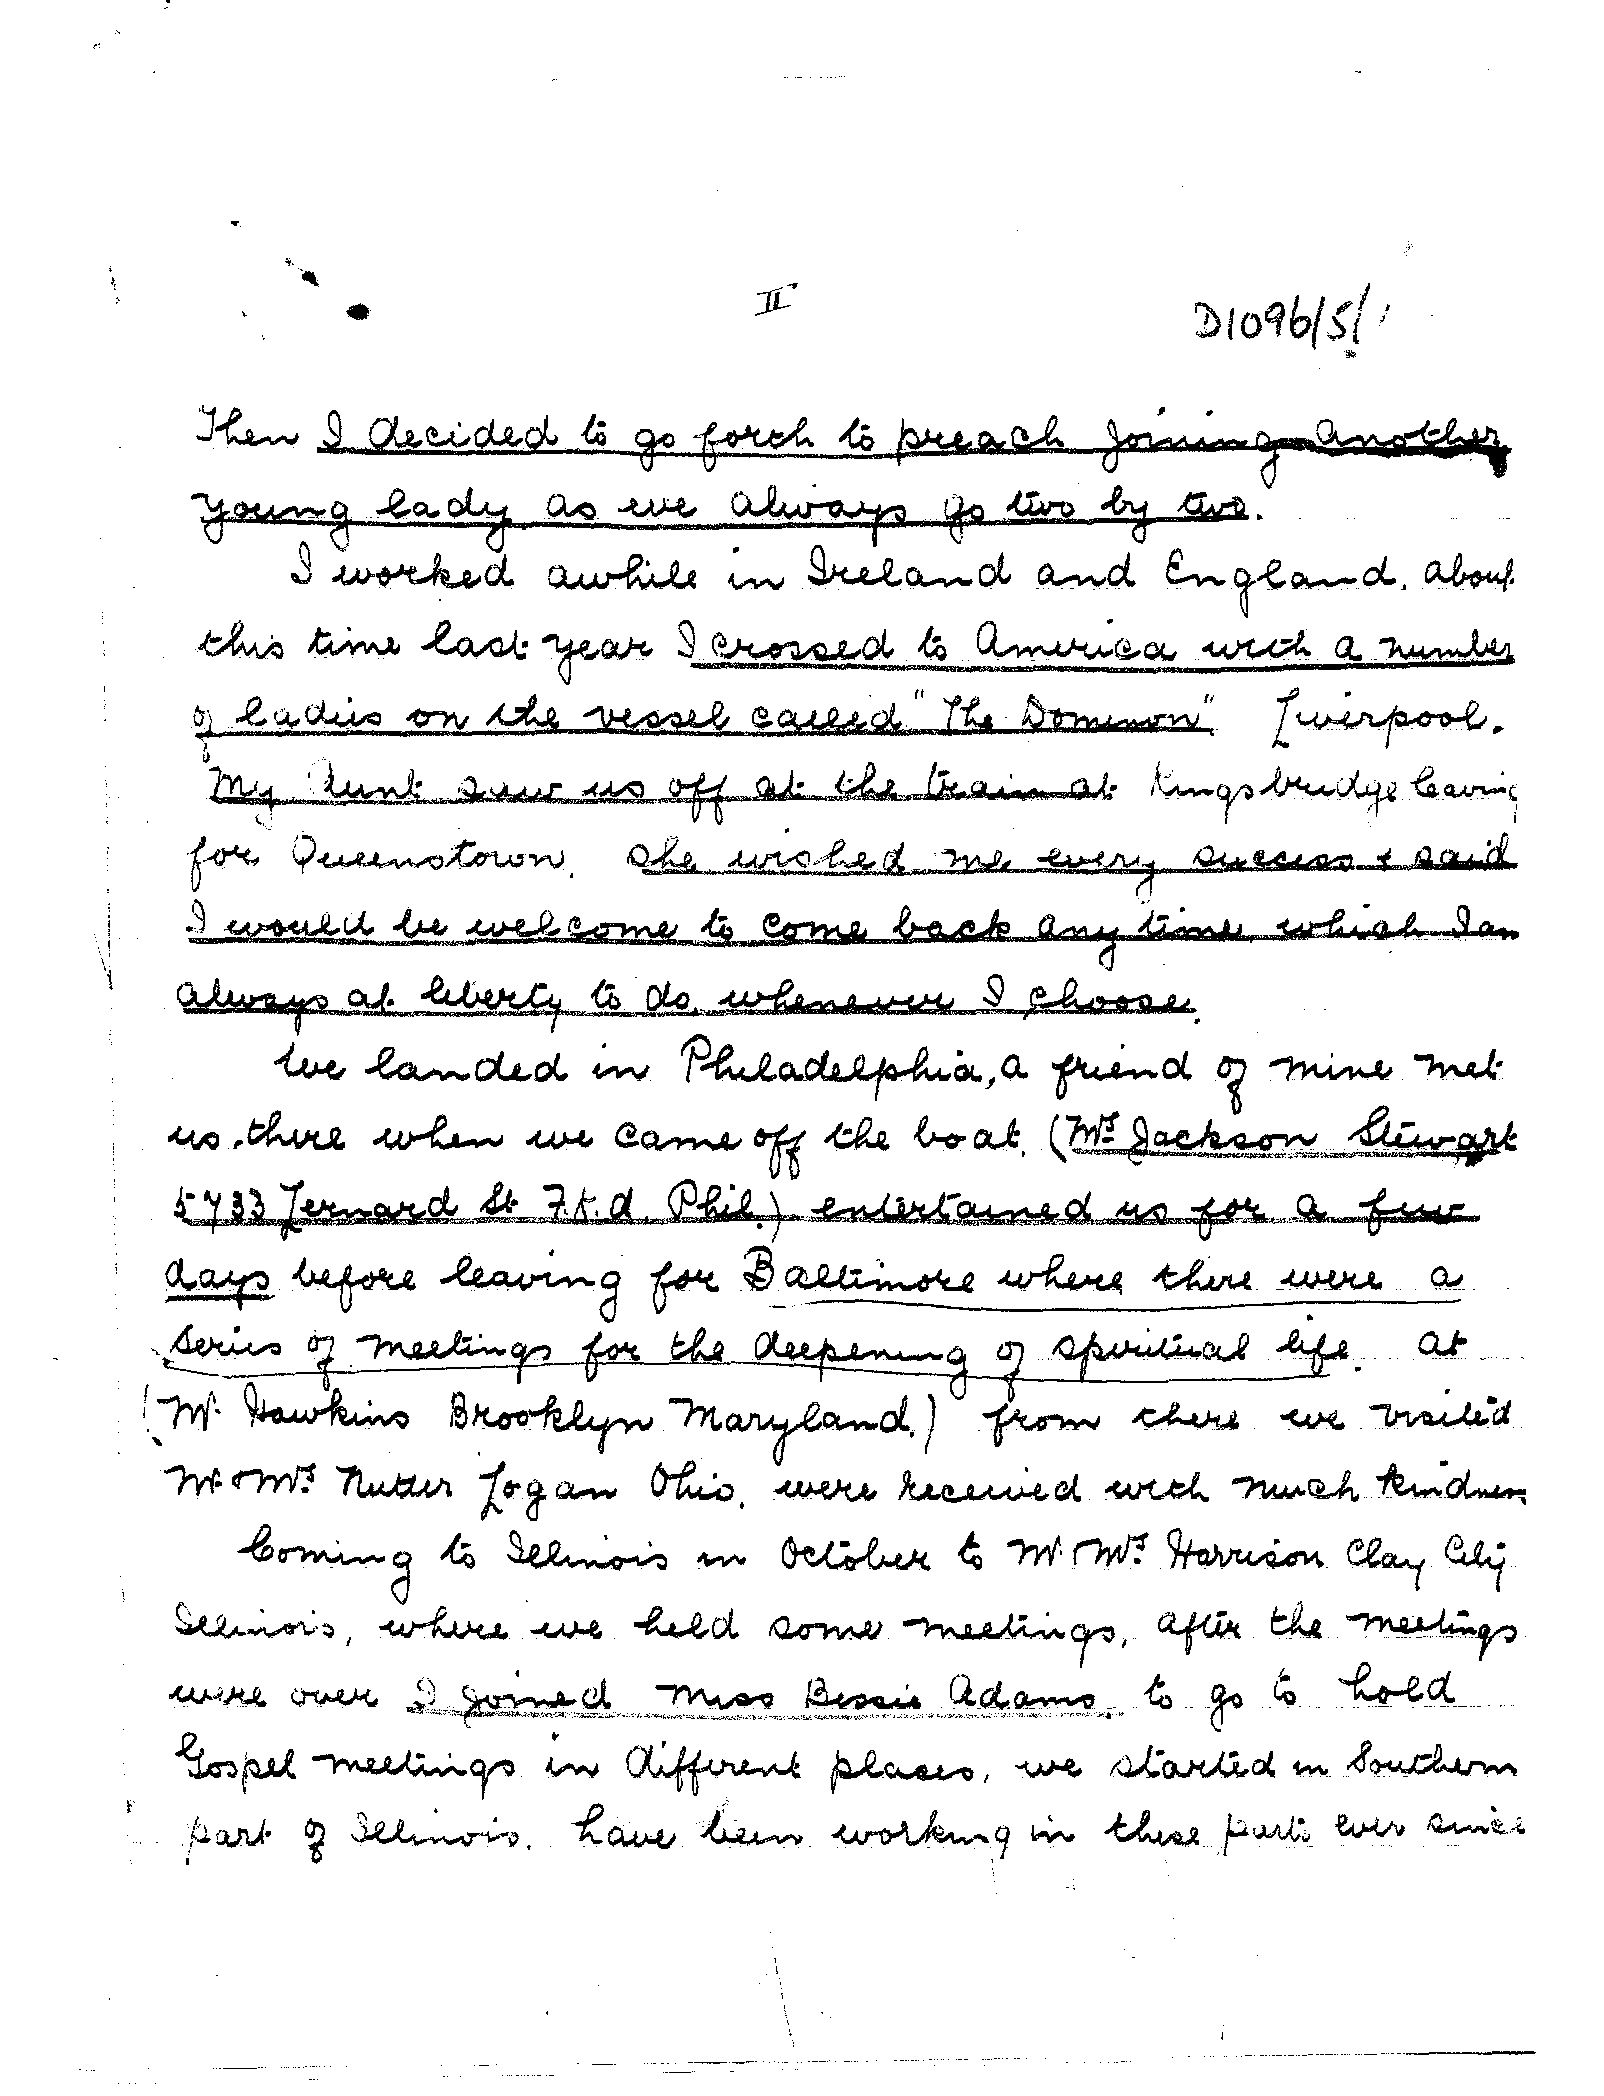 II
D1096/5/1
Then I decided to go forth to preach joining another
young lady as we always go two by two.
I worked awhile in Ireland and England. about
this time last year I crossed to America with a number
of ladies on the vessel called "The Dominon" Liverpool.
My Aunt saw us off at the train at Kingsbridge leaving
for Queenstown. she wished me every success & said
I would be welcome to come back any time which I am
always at liberty to do, whenever I choose.
We landed in Philadelphia, a friend of mine met
us there when we came off the boat. (Mrs Jackson Stewart
5733 St Phil.) entertained us for a few
days before leaving for Baltimore where there were a
series of meetings for the deepening of spiritual life. at
(Mr. Hawkins Brooklyn Maryland.) from there we visited
Mr & Mrs Nutter Logan Ohio, were received with much kindness
Coming to Illinois in October to Mr. Mrs Harrison Clay City
Illinois, where we held some meetings, after the meetings
were over I joined Miss Bessie Adams. to go to hold
Gospel meetings in different places, we started in Southern
part of Illinois. have been working in these parts ever since